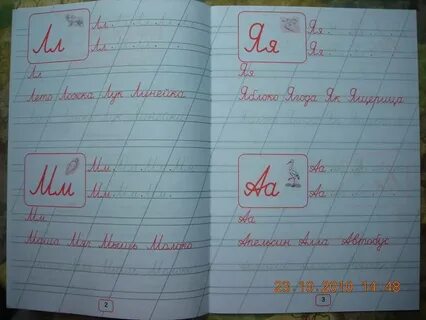 Лл
Лл
Лл
Лл
Лето Ложка Лук Линейка
Мм
Мм
Мм
Мм
Маша Мяч Мышь Молоко
2
Яя
Яя
Яя
Яя
Яблоко Ягода Як Ящерица
Аа
Аа
Аа
Аа
Апельсин Алла Автобус
3
29.10.2010 14:48